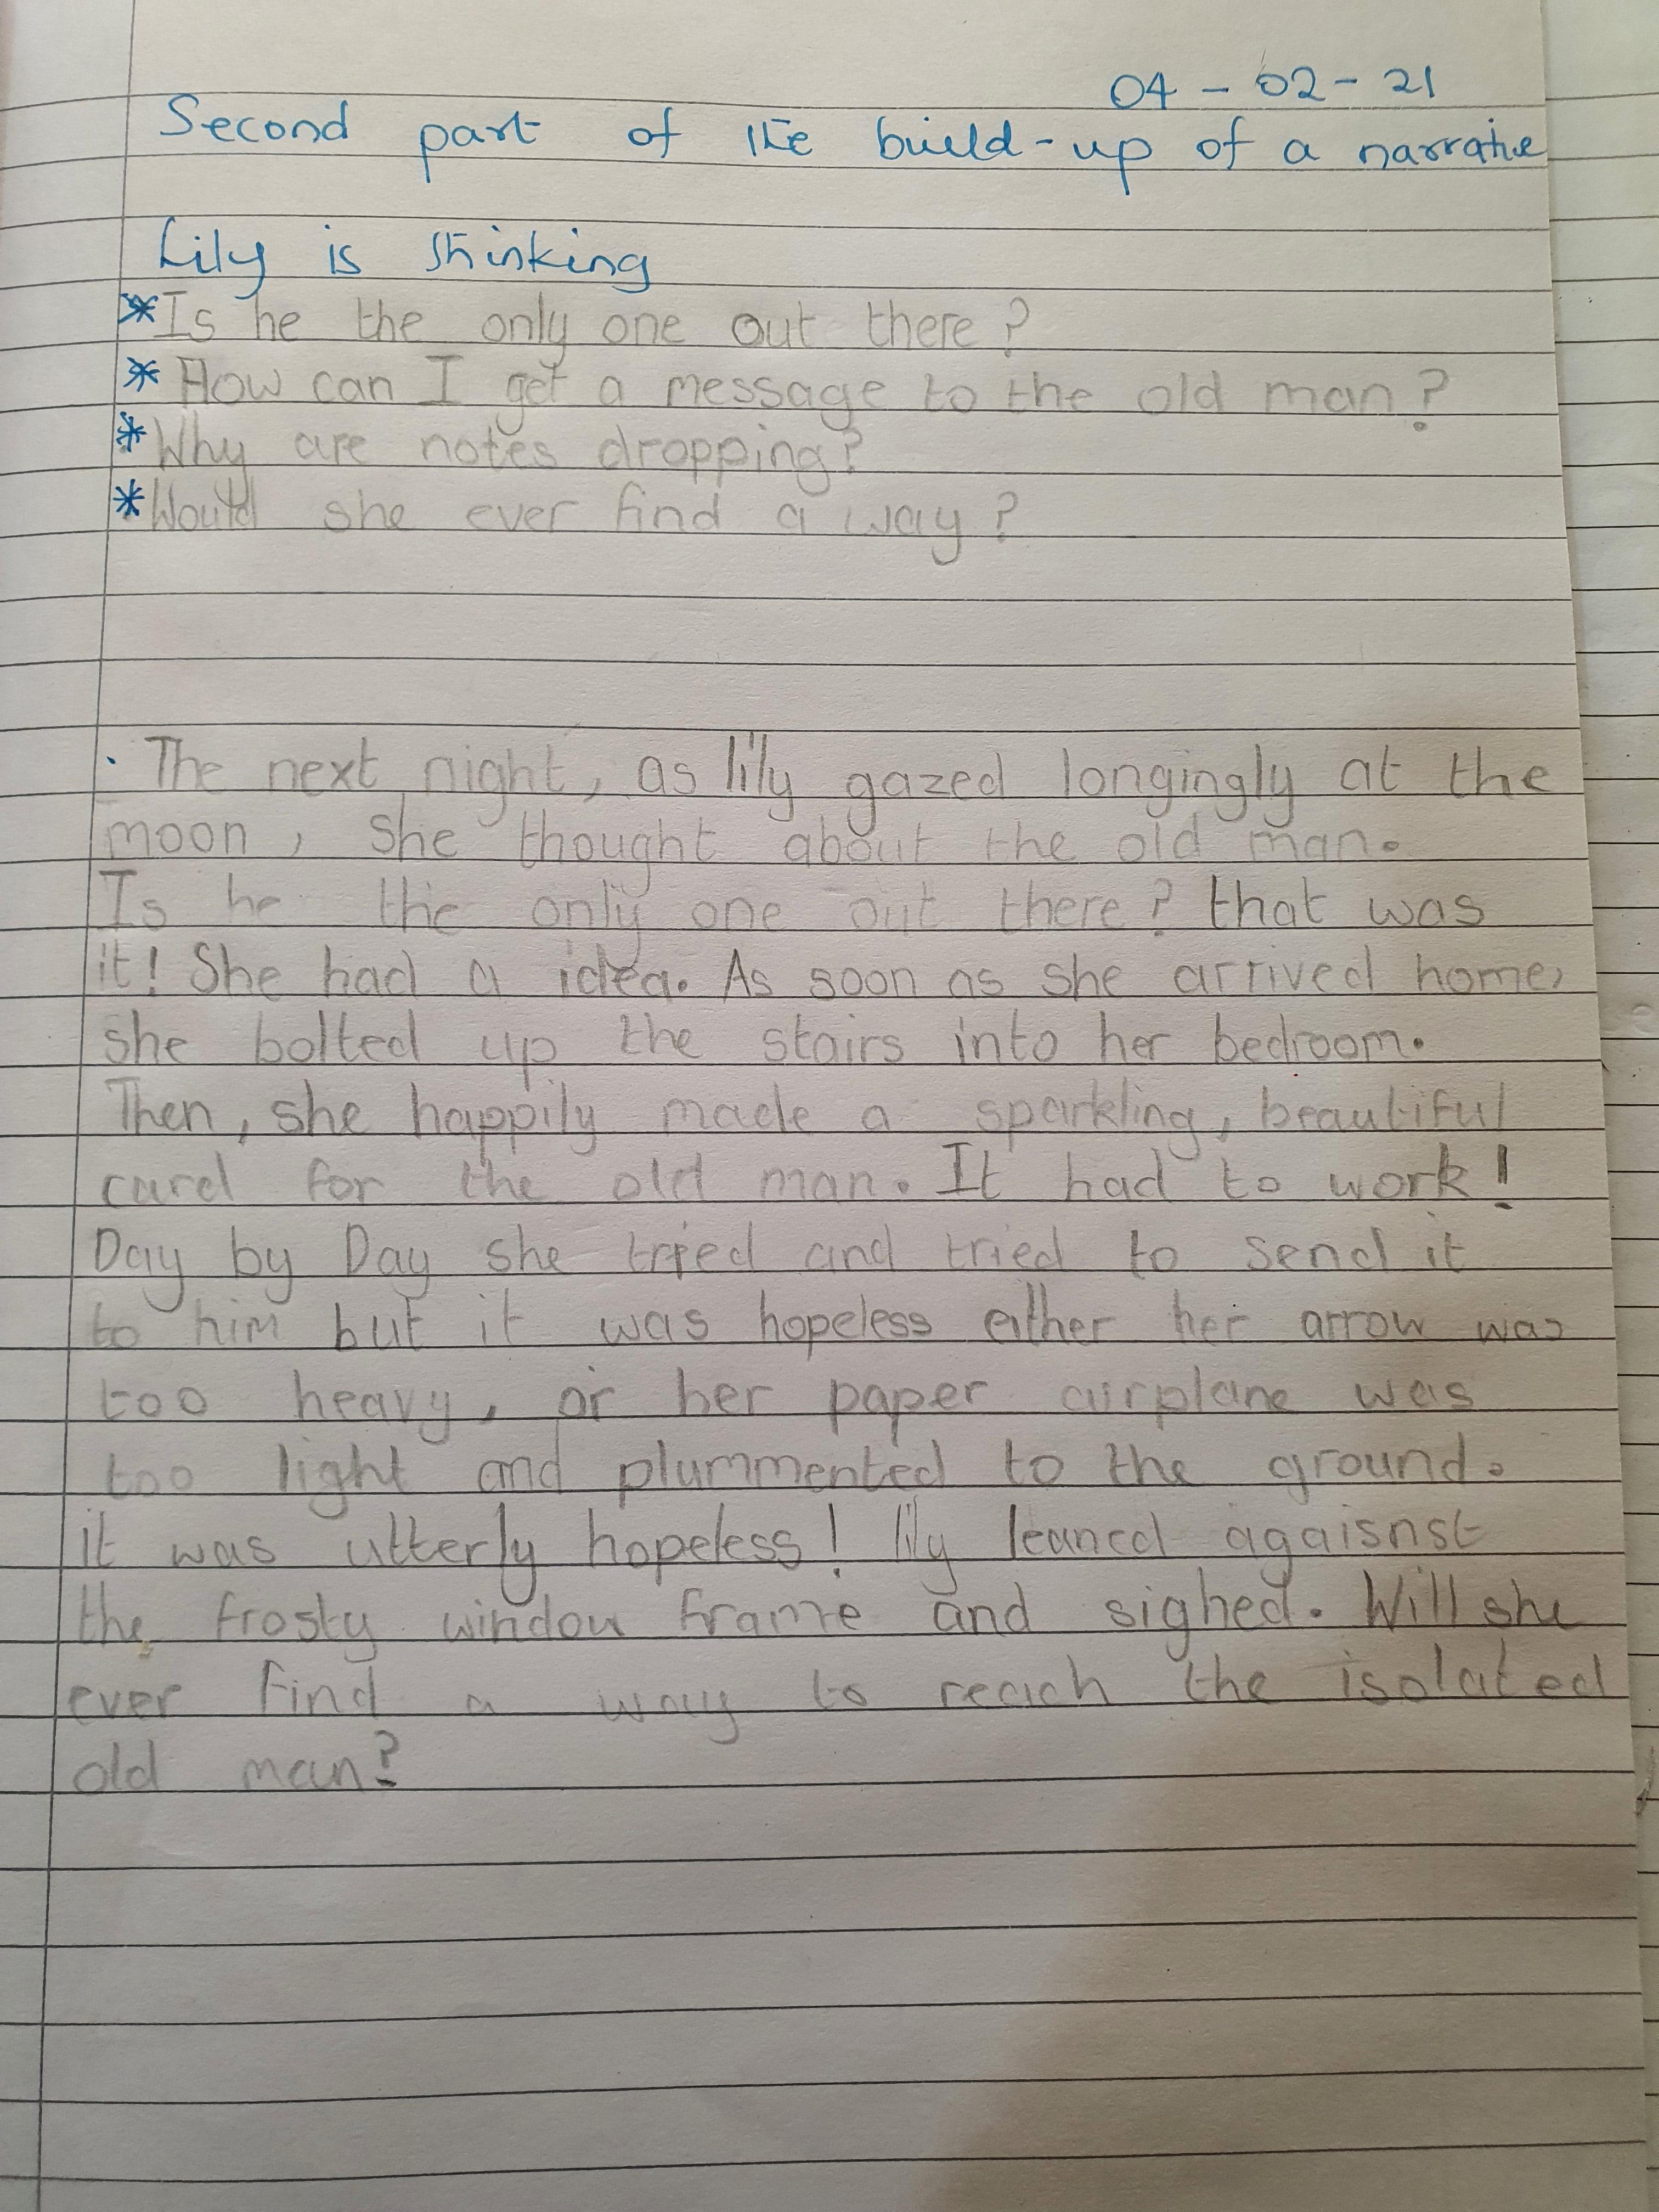 04 - 02 - 21
Second part of the build-up of a narrative
Lily is thinking
*Is he the only one out there?
* How can I get a message to the old man?
*Why are notes dropping?
*Would she ever find a way?
. The next night, as lily gazed longingly at the
moon, she thought about the old man.
Is he the only one out there? that was
it! She had a idea. As soon as she arrived home,
she bolted up the stairs into her bedroom.
Then, she happily made a sparkling, beautiful
card for the old man. It had to work!
Day by Day she tried and tried to send it
to him but it was hopeless either her arrow was
too heavy, or her paper airplane was
too light and plummented to the ground.
it was utterly hopeless! lily leaned agaisnst
the frosty window frame and sighed. Will she
ever find a way to reach the isolated
old man?